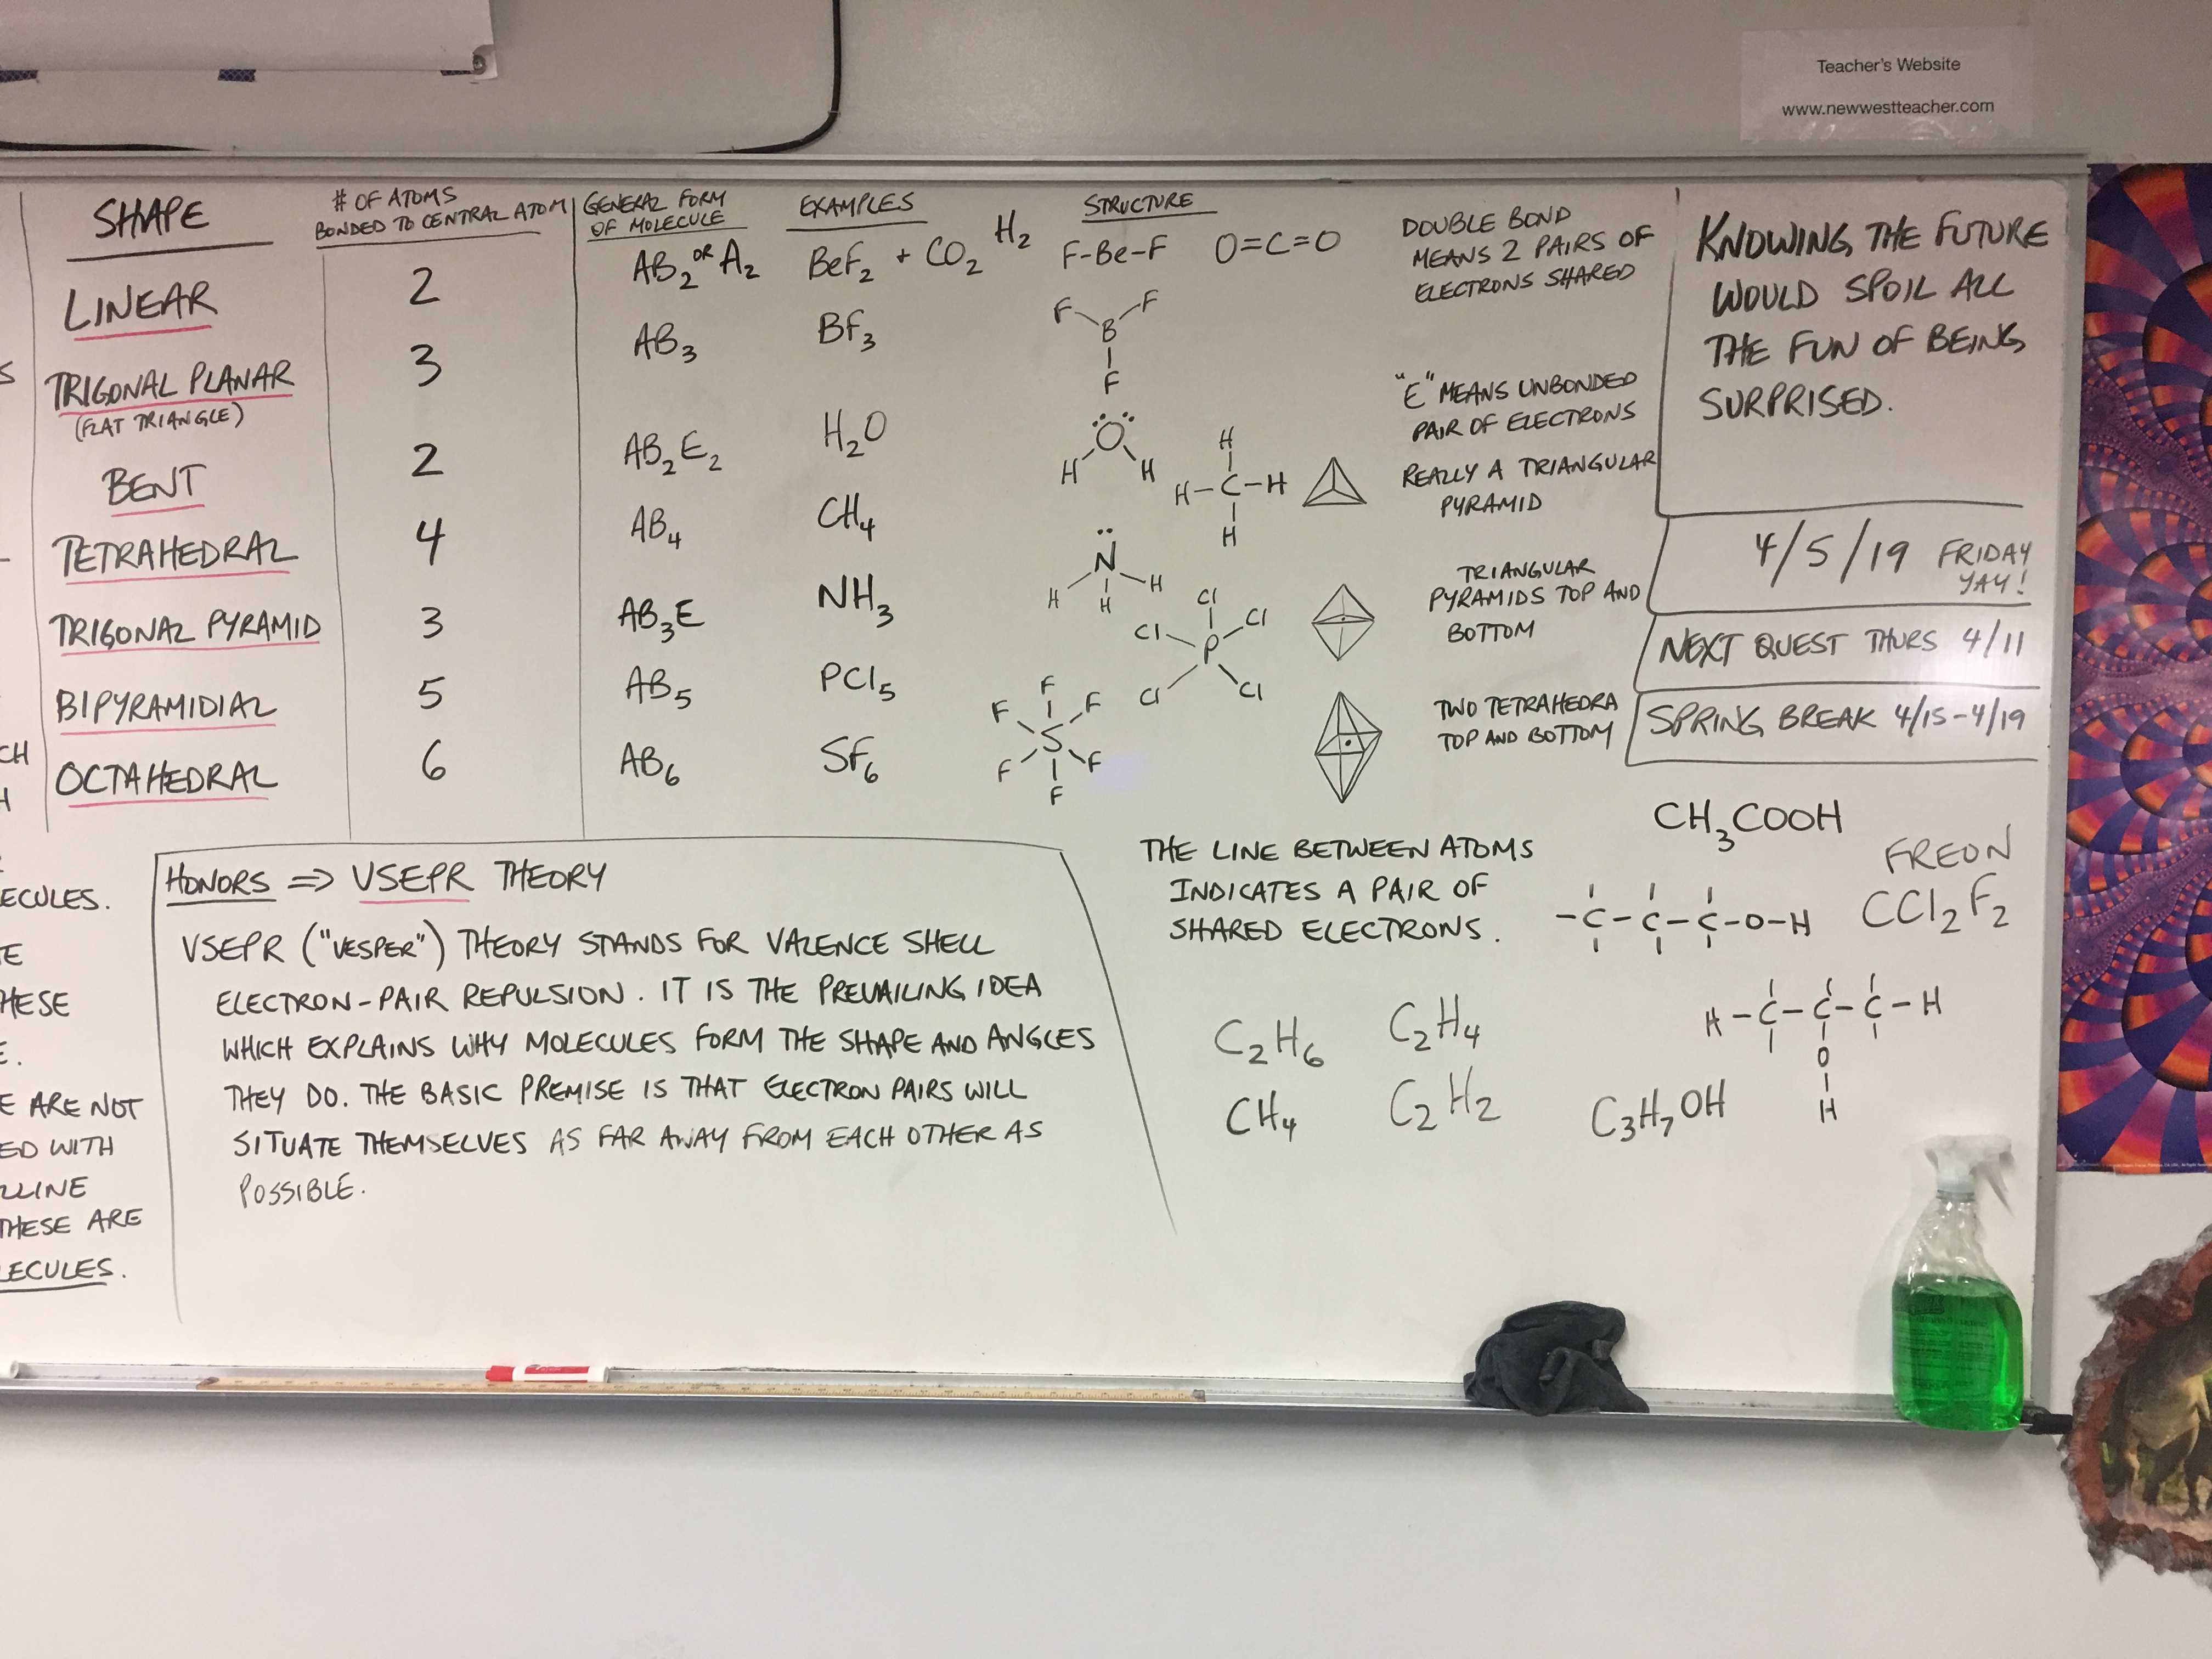 Teacher's Website
www.newwestteacher.com
SHAPE
# OF ATOMS
BONDED TO CENTRAL ATOM
GENERAL FORM
OF MOLECULE
EXAMPLES
STRUCTURE
LINEAR
2
AB₂ OR A₂
BeF₂ + CO₂ H₂
F-Be-F O=C=O
DOUBLE BOND
MEANS 2 PAIRS OF
ELECTRONS SHARED
TRIGONAL PLANAR
(FLAT TRIANGLE)
3
AB₃
BF₃
F F
B
F
"E" MEANS UNBONDED
PAIR OF ELECTRONS
BENT
2
AB₂E₂
H₂O
O
H H
TETRAHEDRAL
4
AB₄
CH₄
H
H-C-H
H
REALLY A TRIANGULAR
PYRAMID
TRIGONAL PYRAMID
3
AB₃E
NH₃
N
H H H
BIPYRAMIDIAL
5
AB₅
PCl₅
Cl
Cl Cl
P
Cl Cl
TRIANGULAR
PYRAMIDS TOP AND
BOTTOM
OCTAHEDRAL
6
AB₆
SF₆
F
F F
S
F F
F
TWO TETRAHEDRA
TOP AND BOTTOM
KNOWING THE FUTURE
WOULD SPOIL ALL
THE FUN OF BEING
SURPRISED.
4/5/19 FRIDAY
YAY!
NEXT QUEST THURS 4/11
SPRING BREAK 4/15-4/19
HONORS => VSEPR THEORY
VSEPR ("VESPER") THEORY STANDS FOR VALENCE SHELL
ELECTRON-PAIR REPULSION. IT IS THE PREVAILING IDEA
WHICH EXPLAINS WHY MOLECULES FORM THE SHAPE AND ANGLES
THEY DO. THE BASIC PREMISE IS THAT ELECTRON PAIRS WILL
SITUATE THEMSELVES AS FAR AWAY FROM EACH OTHER AS
POSSIBLE.
THE LINE BETWEEN ATOMS
INDICATES A PAIR OF
SHARED ELECTRONS.
CH₃COOH
FREON
CCl₂F₂
-C-C-C-O-H
H-C-C-C-H
O
H
C₂H₆ C₂H₄
CH₄ C₂H₂
C₃H₇OH
ECULES.
HESE
E ARE NOT
ED WITH
LLINE
THESE ARE
LECULES.